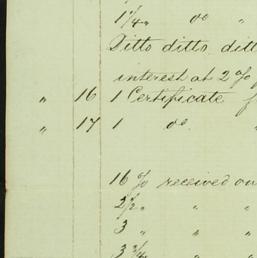 1 1/4 „ do „
Ditto ditto ditt
interest at 2 %
„ 16 1 Certificate f
„ 17 1 do.
16 % received on
2 1/2 „ „ „
3 „ „ „
3 3/4 „ „ „